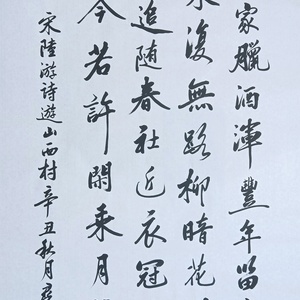 家臘酒渾豐年留
水復無路柳暗花
追随春社近衣冠
今若許閑乘月
宋陸游詩遊山西村辛丑秋月